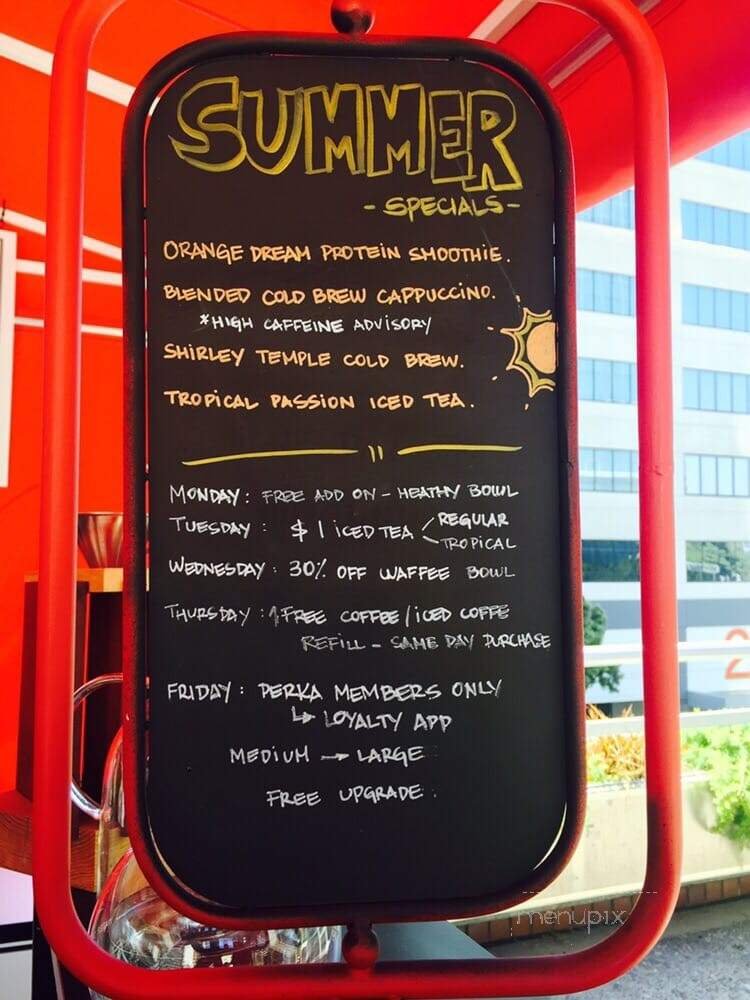 SUMMER
- SPECIALS -
ORANGE DREAM PROTEIN SMOOTHIE.
BLENDED COLD BREW CAPPUCCINO.
*HIGH CAFFEINE ADVISORY
SHIRLEY TEMPLE COLD BREW.
TROPICAL PASSION ICED TEA.
MONDAY: FREE ADD ON - HEATHY BOWL
TUESDAY: $1 ICED TEA REGULAR
TROPICAL
WEDNESDAY: 30% OFF WAFFEE BOWL
THURSDAY: 1 FREE COFFEE / ICED COFFE
REFILL - SAME DAY PURCHASE
FRIDAY: PERKA MEMBERS ONLY
↳ LOYALTY APP
MEDIUM → LARGE
FREE UPGRADE.
menupix
2